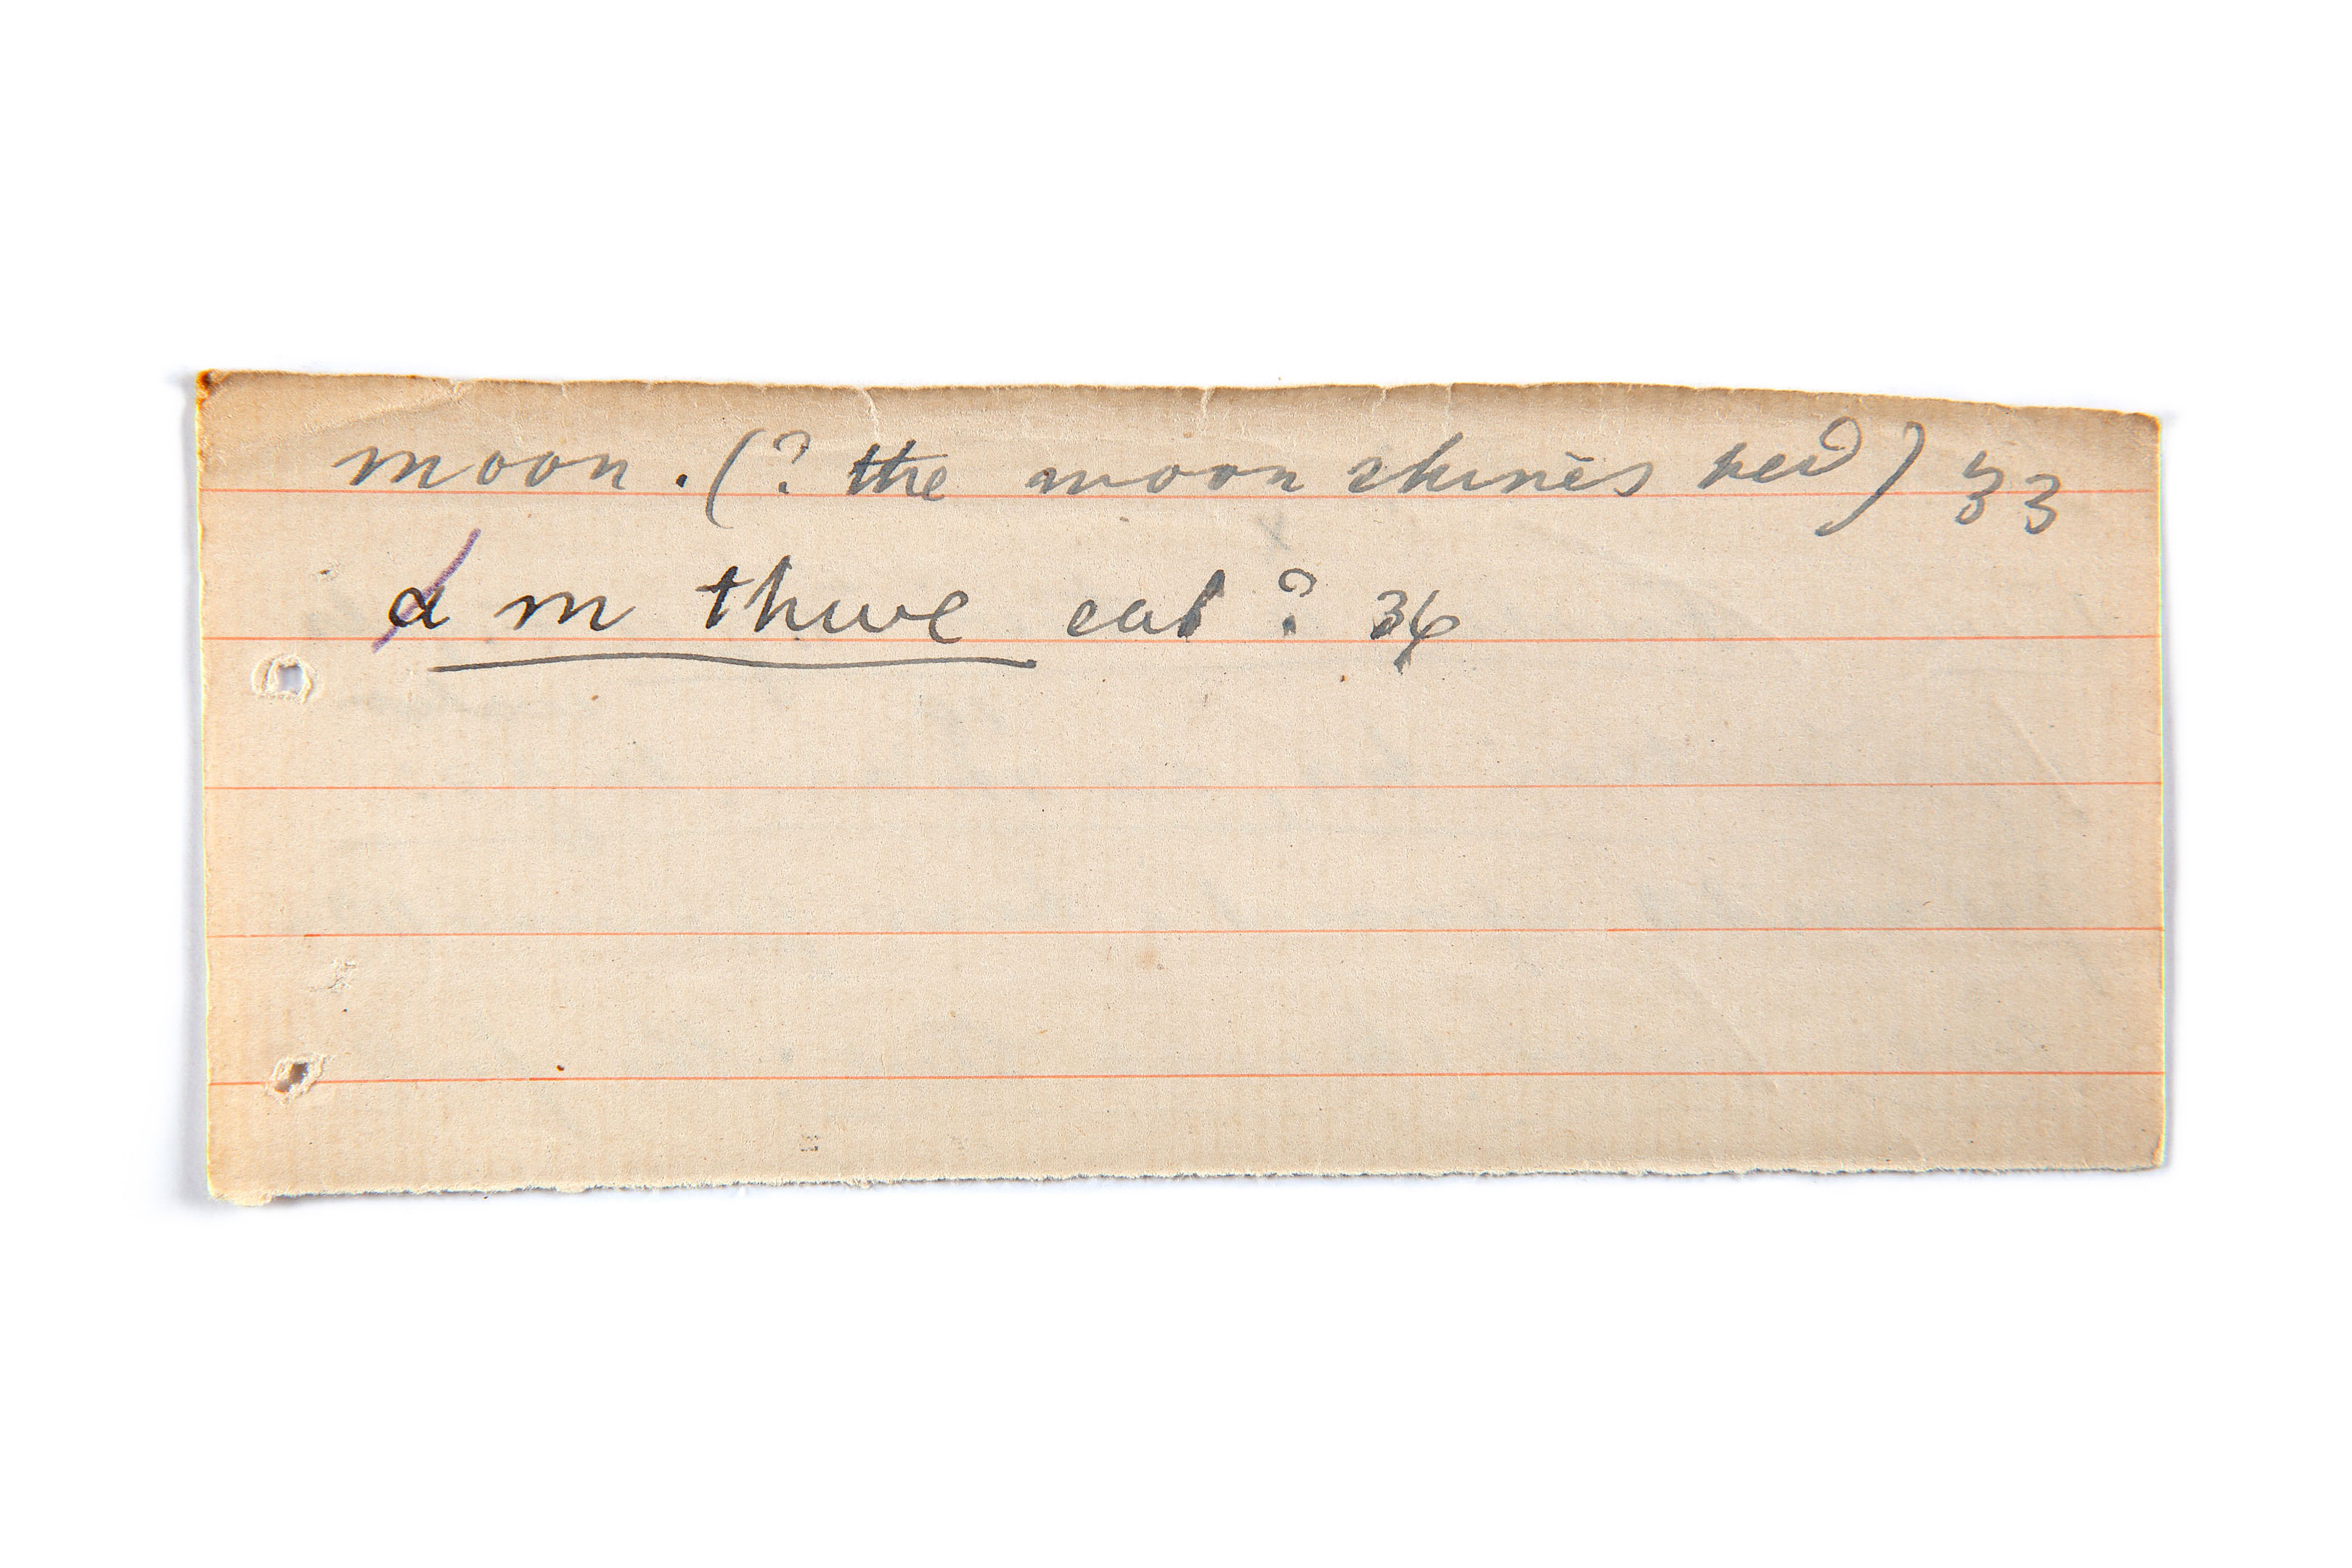 moon. (? the moon shines red) 33
α m thwe eat? 34